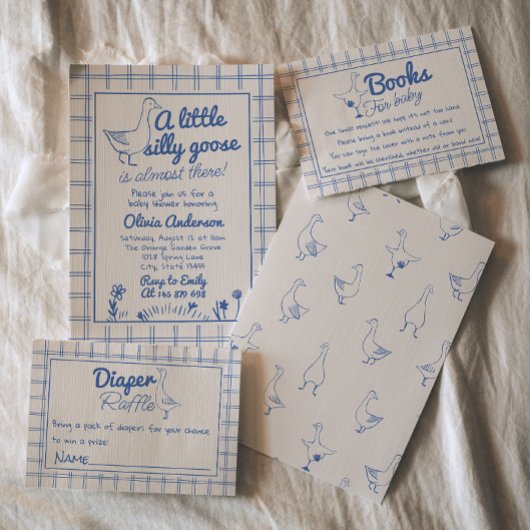 A little
silly goose
is almost there!
Please join us for a
baby shower honoring
Olivia Anderson
Saturday, August 12 at 11am
The Orange Garden Grove
1028 Spring Lane
City, State 13459
Rsvp to Emily
At 145 879 698
Books
For baby
One small request! We hope it's not too hard.
Please bring a book instead of a card.
You can sign the cover with a note from you
Your book will be cherished, whether old or brand new!
Diaper
Raffle
Bring a pack of diapers for your chance
to win a prize!
Name